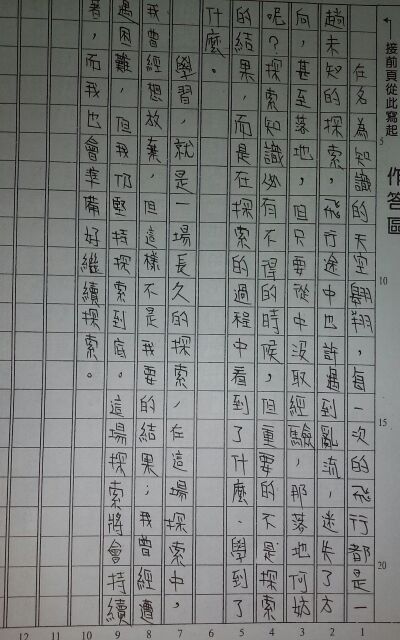 接前頁從此寫起
作答區
在名為知識的天空翱翔，每一次的飛行都是一
趟未知的探索，飛行途中也許遇到亂流，迷失了方
向，甚至落地，但只要從中汲取經驗，那落地何妨
呢？探索知識必有不得的時候，但重要的不是探索
的結果，而是在探索的過程中看到了什麼、學到了
什麼。
學習，就是一場長久的探索，在這場探索中，
我曾經想放棄，但這樣不是我要的結果；我曾經遭
遇困難，但我仍堅持探索到底。這場探索將會持續
著，而我也會準備好繼續探索。
5
10
15
20
1
2
3
4
5
6
7
8
9
10
11
12